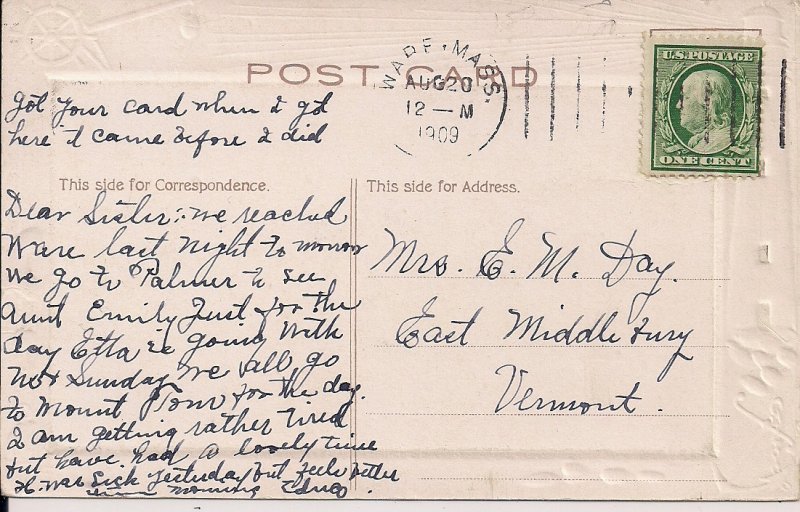 POST CARD
WARE. MASS.
AUG 20
12 — M
1909
U.S. POSTAGE
ONE CENT
got your card when I got
here it came before I did
This side for Correspondence.
This side for Address.
Dear Sister: we reached
Ware last night to morrow
we go to Palmer to see
Aunt Emily Just for the
day Etta is going with
next Sunday we all go
to Mount Tom for the day.
I am getting rather tired
but have had a lovely time
H. was sick yesterday but feels better
this morning
Mrs. E. M. Day.
East Middlebury
Vermont.